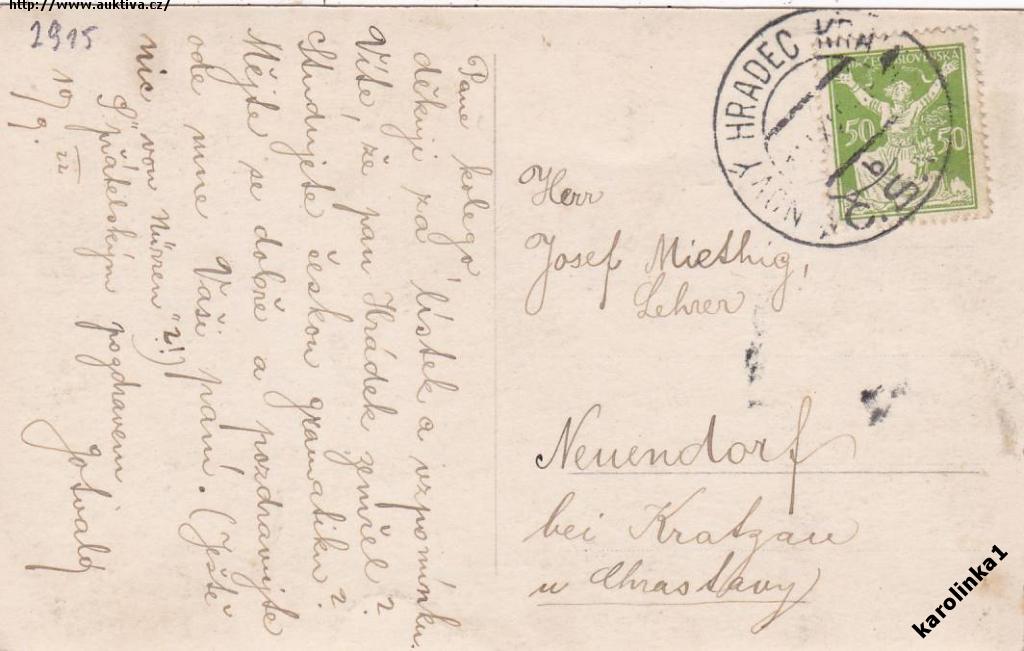 http://www.auktiva.cz/
2915
Pane kolego
děkuji za lístek a vzpomínku.
Víte, že pan Hrádek zemřel?
Studujete českou gramatiku?
Mějte se dobře a pozdravujte
ode mne Vaši paní. (Ještě
nic "von Nürren"?!)
S přátelským pozdravem
Gotvald
10/9 22
NOVÝ HRADEC KRÁ
Č.S.
ČESKOSLOVENSKÁ
50 50
Herr
Josef Miethig,
Lehrer
Neuendorf
bei Kratzau
u Chrastavy
karolinka1